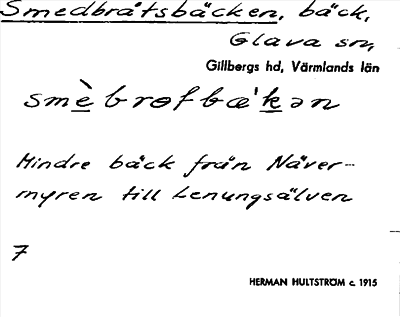 Smedbråtsbäcken, bäck,
Glava sn,
Gillbergs hd, Värmlands län
smè brofbæ'kən
Mindre bäck från Näver-
myren till Lenungsälven
7
HERMAN HULTSTRÖM c. 1915